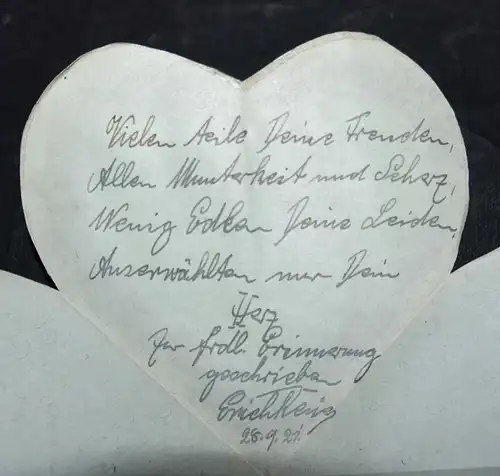 Vielen teile Deine Freuden,
Allen Munterkeit und Scherz,
Wenig Edlen Deine Leiden,
Auserwählten nur Dein
Herz
Zur frdl. Erinnerung
geschrieben
Erich
28.9.21.